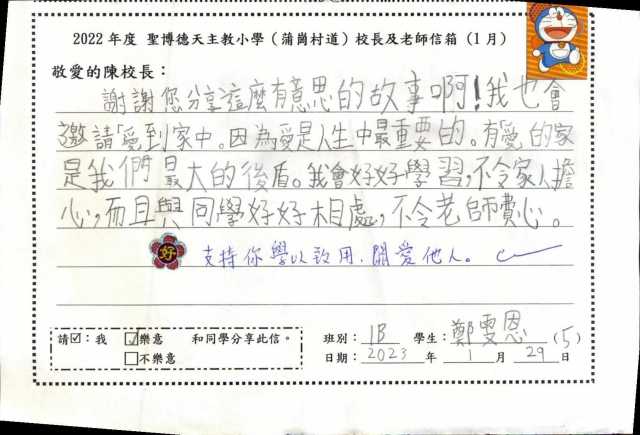 2022 年度 聖博德天主教小學（蒲崗村道）校長及老師信箱（1月）
敬愛的陳校長：
謝謝您分享這麼有意思的故事啊！我也會
邀請「愛」到家中。因為愛是人生中最重要的。有「愛」的家
是我們最大的後盾。我會好好學習，不令家人擔
心，而且與同學好好相處，不令老師費心。
好 支持你學以致用，關愛他人。
請☑：我 ☑樂意 和同學分享此信。
□不樂意
班別：1B 學生：鄭雯恩 (5)
日期：2023 年 1 月 29 日